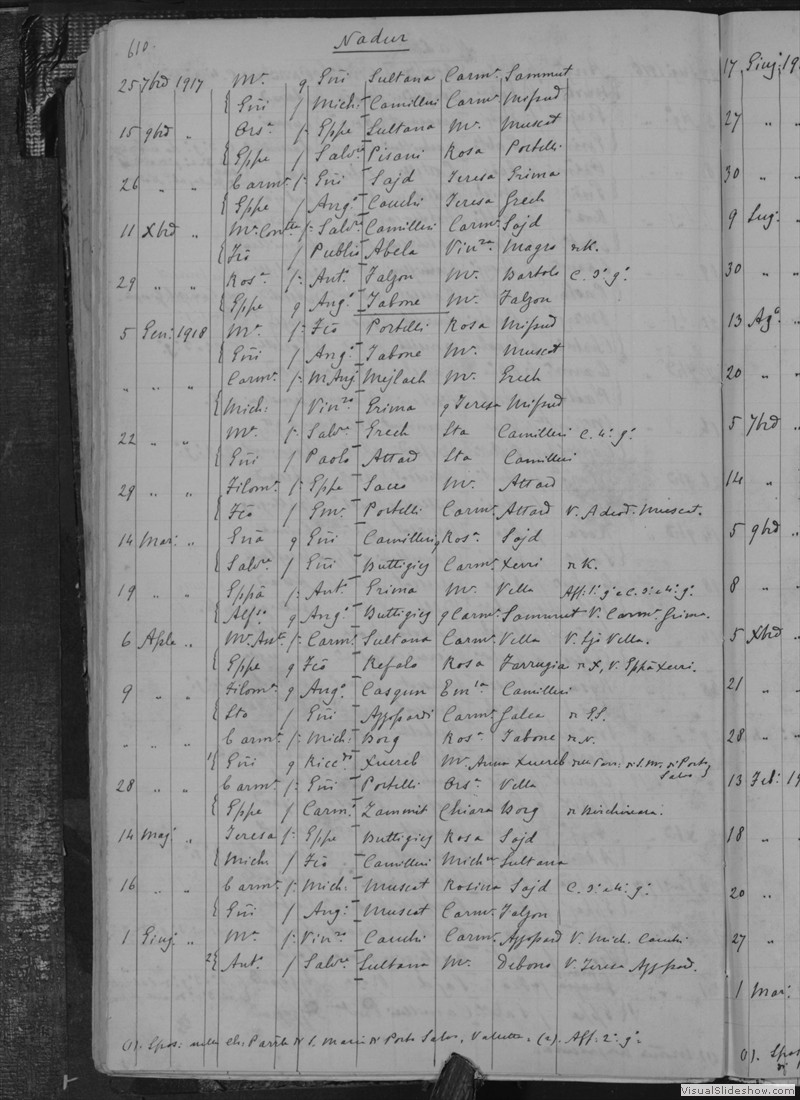 610.
Nadur
25 7bre 1917 Ma. g Giũ Sultana Carma. Sammut
Giũ f Mich: Camilleri Carma. Mifsud
15 9bre „ Orsa. f. Eppe Sultana Ma. Muscat
Eppe f Salvre Pisani Rosa Portelli
26 „ „ Carma. f. Giũ Sajd Teresa Grima
Eppe f Ango. Cauchi Teresa Grech
11 Xbre „ Ma. Contta f. Salvre Camilleri Carma. Sajd
Fco f Publio Abela Vinza Magro di K.
29 „ „ Rosa f. Anto. Falzon Ma. Bartolo C. 3o. go.
Eppe g Ango. Tabone Ma. Falzon
5 Gen: 1918 Ma. f. Fco Portelli Rosa Mifsud
Giũ f Ango. Tabone Ma. Muscat
„ „ „ Carma. f. M.Ang Mejlach Ma. Grech
Mich: f Vinzo Grima g Teresa Mifsud
22 „ „ Ma. f. Salvre Grech Sta Camilleri C. 4o. go.
Giũ f Paolo Attard Sta Camilleri
29 „ „ Filoma. f. Eppe Sacco Ma. Attard
Fco f Emo. Portelli Carma. Attard V. Adeod. Muscat.
14 Mar: „ Giũa g Giũ Camilleri g Rosa. Sajd
Salvre f Giũ Buttigieg Carma. Xerri di K.
19 „ „ Eppa f. Anto. Grima Ma. Vella Aff: 1o. go. e C. 3o. e 4o. go.
Alfso. g Ango. Buttigieg g Carma. Sammut V. Carma. Grima.
6 Aple „ Ma. Anta. f. Carmo. Sultana Carma. Vella V. Ljo Vella.
Eppe g Fco Refalo Rosa Farrugia di X, V. Eppa Xerri.
9 „ „ Filoma. g Ango. Casgun Emla Camilleri
Sto f Giũ Azzopardi Carma. Galea di G.S.
„ „ „ Carma. f. Mich: Borg Rosa. Tabone di N.
1) Giũ g Riccdo Xuereb Ma. Anna Xuereb della Parr: di S. Ma. di Porto Salvo
28 „ „ Carma. f. Giũ Portelli Orsa. Vella
Eppe f Carmo. Zammit Chiara Borg di Birchircara.
14 Mag: „ Teresa f. Eppe Buttigieg Rosa Sajd
Mich: f Fco Camilleri Michna Sultana
16 „ „ Carma. f. Mich: Muscat Rosina Sajd C. 3o. e 4o. go.
Giũ f Ango: Muscat Carma. Falzon
1 Giug. „ Ma. f. Vinzo Cauchi Carma. Azzopard V. Mich. Cauchi
2) Anto. f Salvre Sultana Ma. Debono V. Teresa Azzopard.
(1). Spos: nella ch. Parrle di S. Maria di Porto Salvo, Valletta. (2). Aff: 2o. go.
17 Giug: 19
27 „
30 „
9 Lug: „
30 „
13 Ago. „
20 „
5 7bre „
14 „
5 9bre „
8 „
5 Xbre „
21 „
28 „
13 Feb: 19
18 „
20 „
27 „
1 Mar:
(1). Spos
VisualSlideshow.com